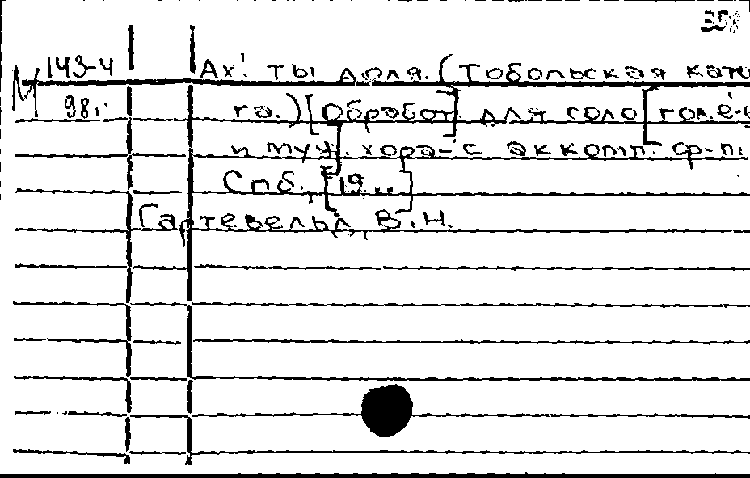 358
143-4 Ах! ты доля. (Тобольская като
98г. га.) [Обработ] для соло [гол. е-
и муж] хора с аккомп. ф-п.
Спб., [19..]
Гартевельд, В.Н.